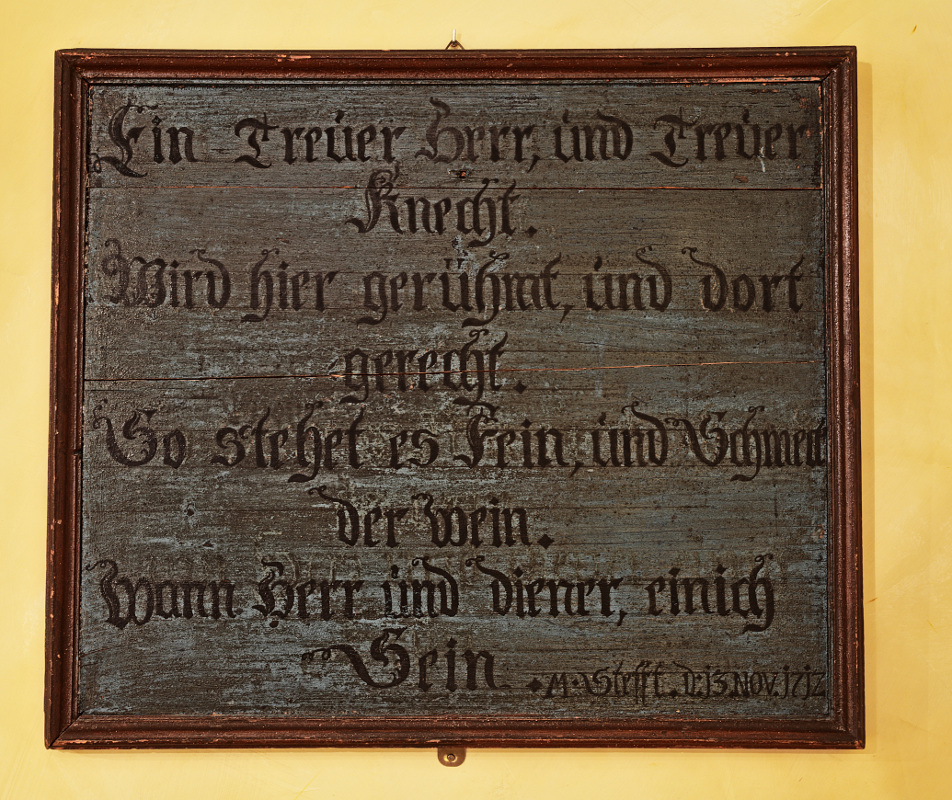 Ein Treuer Herr, und Treuer
Knecht.
Wird hier gerühmt, und dort
gerecht.
So stehet es Fein, und Schmeckt
der wein.
Wann Herr und diener, einich
Sein
M. Stefft. D: 13. NOV. 1712